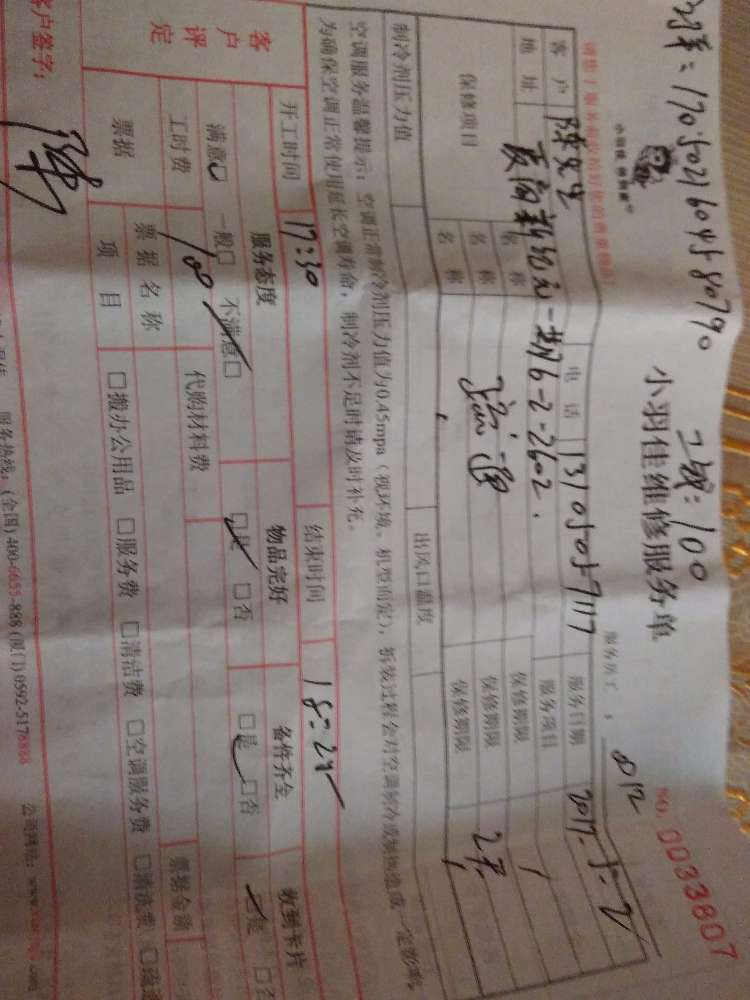 订单：17050216045480790
工费：100
小羽佳维修服务单
NO. 0033807
小羽佳 帮到家
服务员工：
客户 陈先生 电话 13105057117 服务日期 2017.5.2
地址 服务项目
保修项目 名称 保修期限
名称 保修期限
名称 保修期限
制冷剂压力值 出风口温度
空调服务温馨提示：空调正常制冷剂压力值为0.45mpa（视环境、机型而定），拆装过程会对空调制冷或制热造成一定影响，
为确保空调正常使用延长空调寿命，制冷剂不足时请及时补充。
开工时间 17:30 结束时间 18:25
客户评定 服务态度 物品完好 备件齐全 收到卡片
满意□ 一般□ 不满意□ □是 □否 □是 □否 □是 □否
工时费 100 代购材料费
票据 票据名称 票据金额
项目 □搬办公用品 □服务费 □清洁费 □空调服务费 □清洗费
客户签字：
服务热线：（全国）400-6655-888 （厦门）0592-5176888 公司网址：